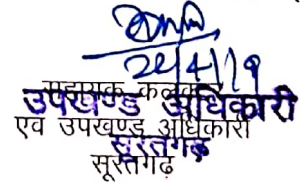 24/4/19
सहायक कलक्टर
उपखण्ड अधिकारी
एवं उपखण्ड अधिकारी
सूरतगढ़
सूरतगढ़